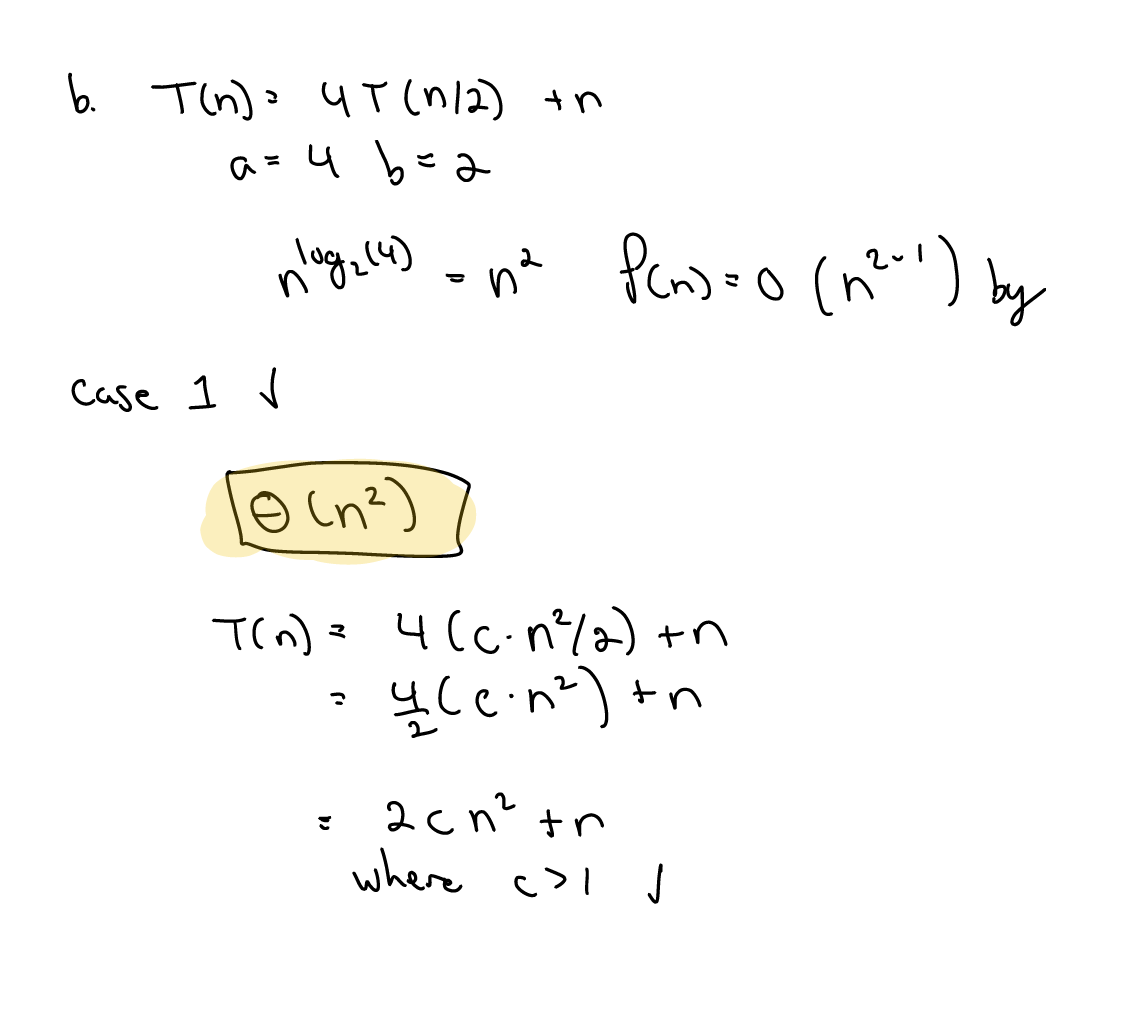 b. T(n) = 4T(n/2) + n
a = 4 b = 2
n^log₂(4) = n² f(n) = O(n^2-1) by
case 1 ✓
Θ(n²)
T(n) = 4(c·n²/2) + n
= 4/2(c·n²) + n
= 2cn² + n
where c>1 ✓